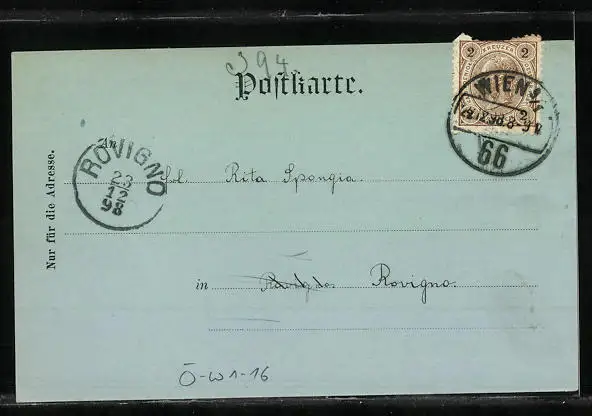 394
Postkarte.
2 KREUZER 2
WIEN 1/1
8-9V
66
An
ROVIGNO
23
12
98
Rita Spongia.
Nur für die Adresse.
in Rovigno.
Ö-W1-16